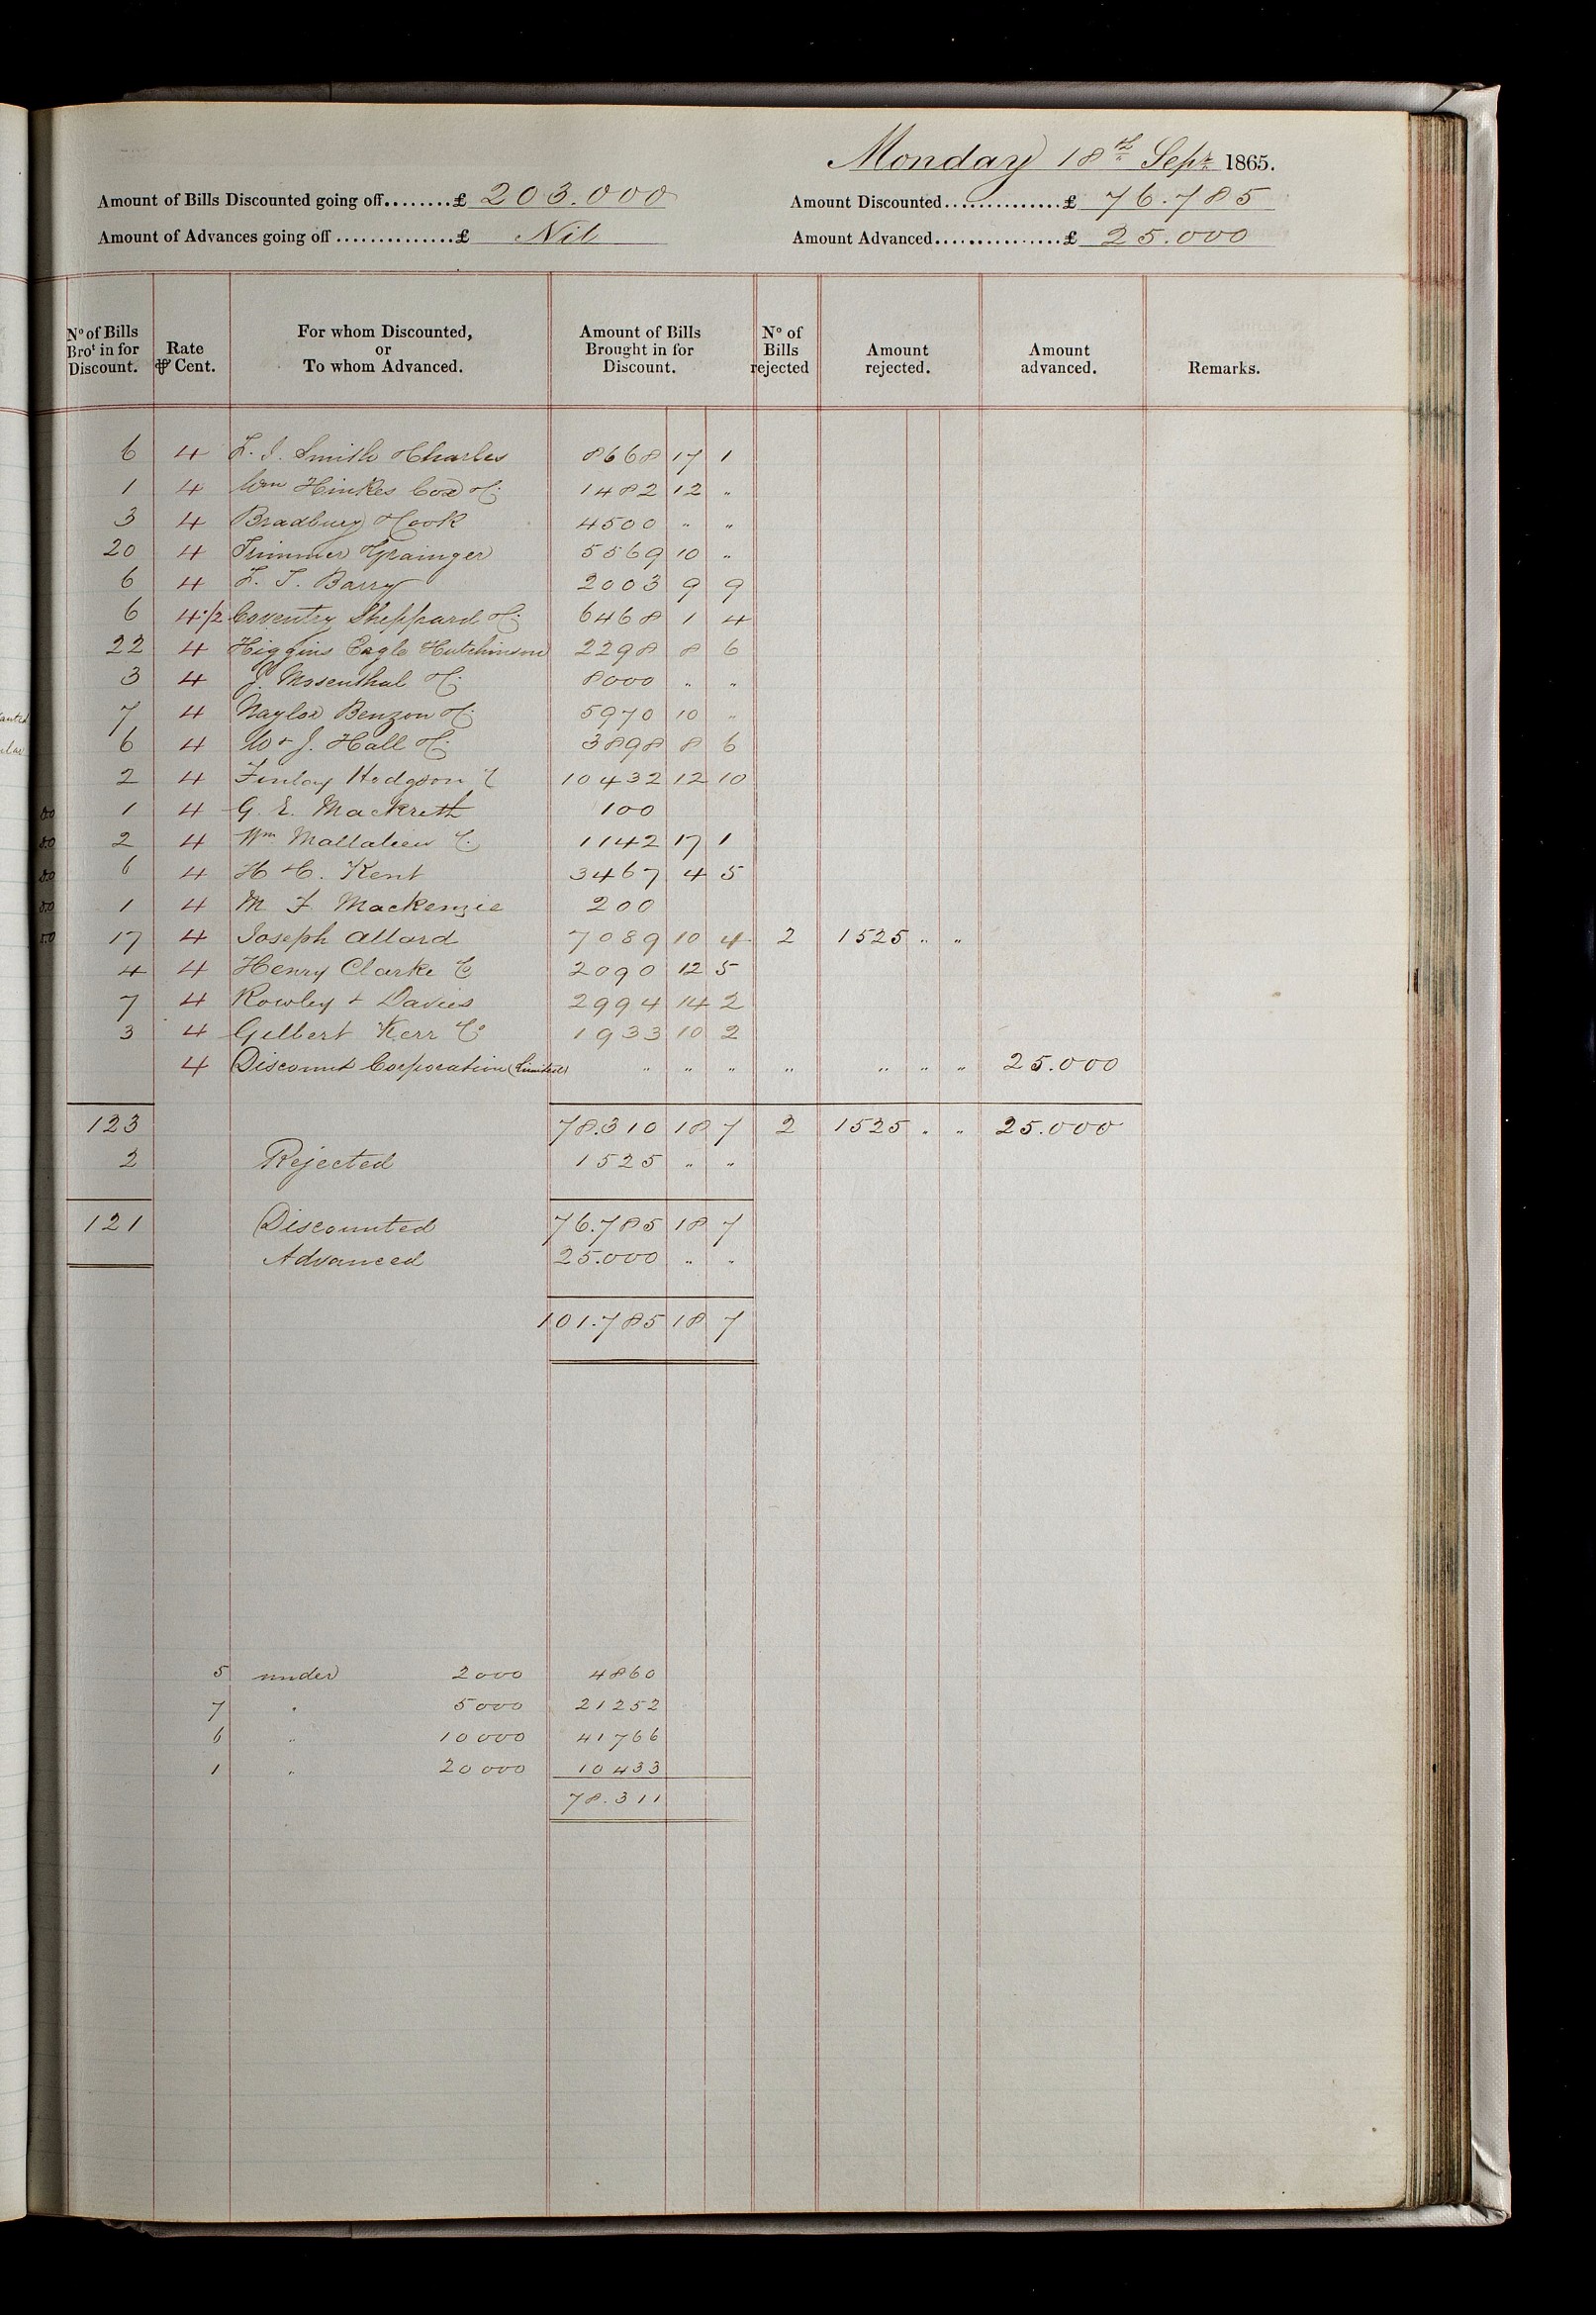 Monday 18th Sepr 1865.
Amount of Bills Discounted going off........£ 203.000 Amount Discounted..............£ 76.785
Amount of Advances going off..............£ Nil Amount Advanced................£ 25.000
No of Bills Brot in for Discount. Rate ⅌ Cent. For whom Discounted, or To whom Advanced. Amount of Bills Brought in for Discount. No of Bills rejected Amount rejected. Amount advanced. Remarks.
6 4 Smith & Charles 8668 17 1
1 4 Wm Hinkes Cox & Co 1482 12 "
3 4 Bradbury & Cook 4500 " "
20 4 Trimmer & Grainger 5569 10 "
6 4 F. T. Barry 2003 9 9
6 4 1/2 Coventry Sheppard & Co 6468 1 4
22 4 Higgins Eagle & Hutchinson 2298 8 6
3 4 J. Mosenthal & Co 8000 " "
7 4 Naylor Benzon & Co 5970 10 "
6 4 W & J. Hall & Co 3898 8 6
2 4 Finlay Hodgson & Co 10432 12 10
1 4 G. E. Mackreth 100
2 4 Wm Mallalieu & Co 1142 17 1
6 4 H C. Kent 3467 4 5
1 4 M F Mackenzie 200
17 4 Joseph Allard 7089 10 4 2 1525 " "
4 4 Henry Clarke & Co 2090 12 5
7 4 Rowley & Davies 2994 14 2
3 4 Gilbert Kerr & Co 1933 10 2
4 Discount Corporation (Limited) " " " " " " " 25.000
123 78.310 18 7 2 1525 " " 25.000
2 Rejected 1525 " "
121 Discounted 76.785 18 7
Advanced 25.000 " "
101.785 18 7
5 under 2000 4860
7 " 5000 21252
6 " 10000 41766
1 " 20000 10433
78.311